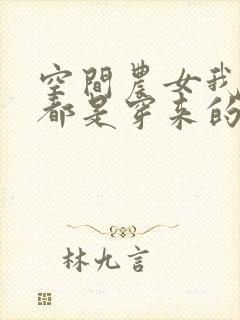 空間農女我
都是穿来的
林九言